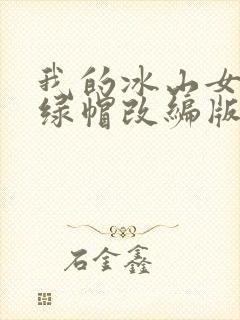 我的冰山女
绿帽改编版
石金鑫